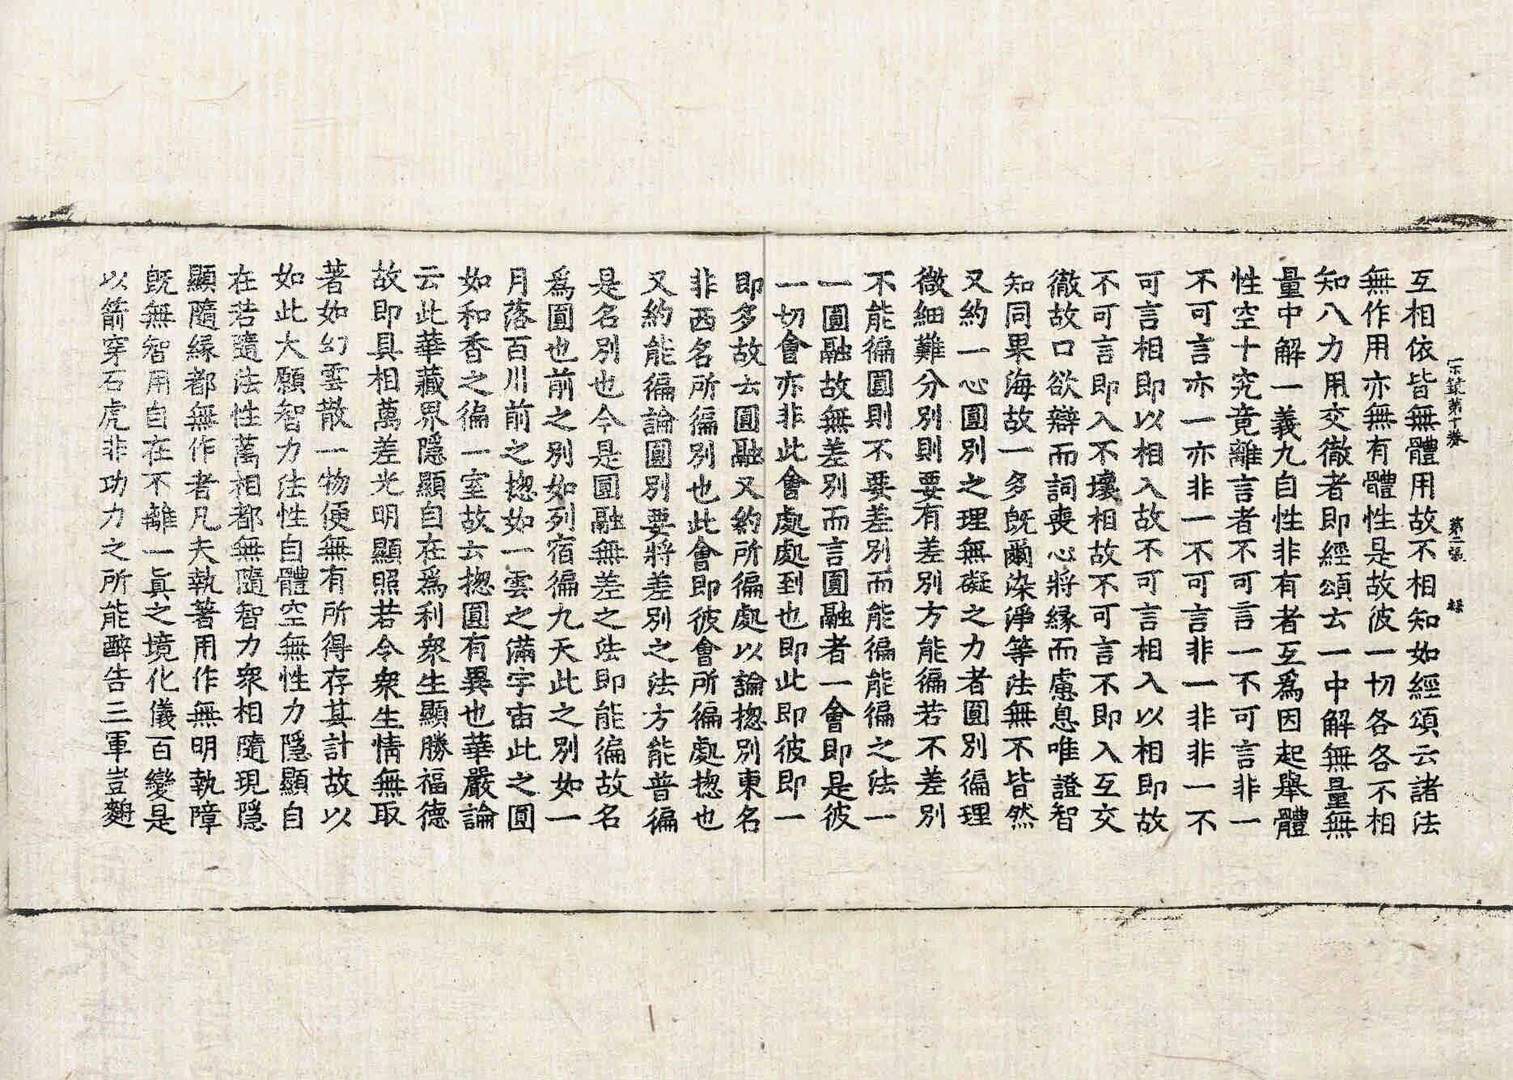 宗鏡第十卷 第二張 緑
互相依皆無體用故不相知如經頌云諸法
無作用亦無有體性是故彼一切各各不相
知八力用交徹者即經頌云一中解無量無
量中解一義九自性非有者互爲因起舉體
性空十究竟離言者不可言一不可言非一
不可言亦一亦非一不可言非一非非一不
可言相即以相入故不可言相入以相即故
不可言即入不壞相故不可言不即入互交
徹故口欲辯而詞喪心將緣而慮息唯證智
知同果海故一多旣爾染淨等法無不皆然
又約一心圓別之理無礙之力者圓別徧理
微細難分別則要有差別方能徧若不差別
不能徧圓則不要差別而能徧能徧之法一
一圓融故無差別而言圓融者一會即是彼
一切會亦非此會處處到也即此即彼即一
即多故云圓融又約所徧處以論揔別東名
非西名所徧別也此會即彼會所徧處揔也
又約能徧論圓別要將差別之法方能普徧
是名別也今是圓融無差之法即能徧故名
爲圓也前之別如列宿徧九天此之別如一
月落百川前之揔如一雲之滿宇宙此之圓
如和香之徧一室故云揔圓有異也華嚴論
云此華藏界隱顯自在爲利衆生顯勝福德
故即具相萬差光明顯照若令衆生情無取
著如幻雲散一物便無有所得存其計故以
如此大願智力法性自體空無性力隱顯自
在若隨法性萬相都無隨智力衆相隨現隱
顯隨緣都無作者凡夫執著用作無明執障
旣無智用自在不離一眞之境化儀百變是
以箭穿石虎非功力之所能醉告三軍豈麴